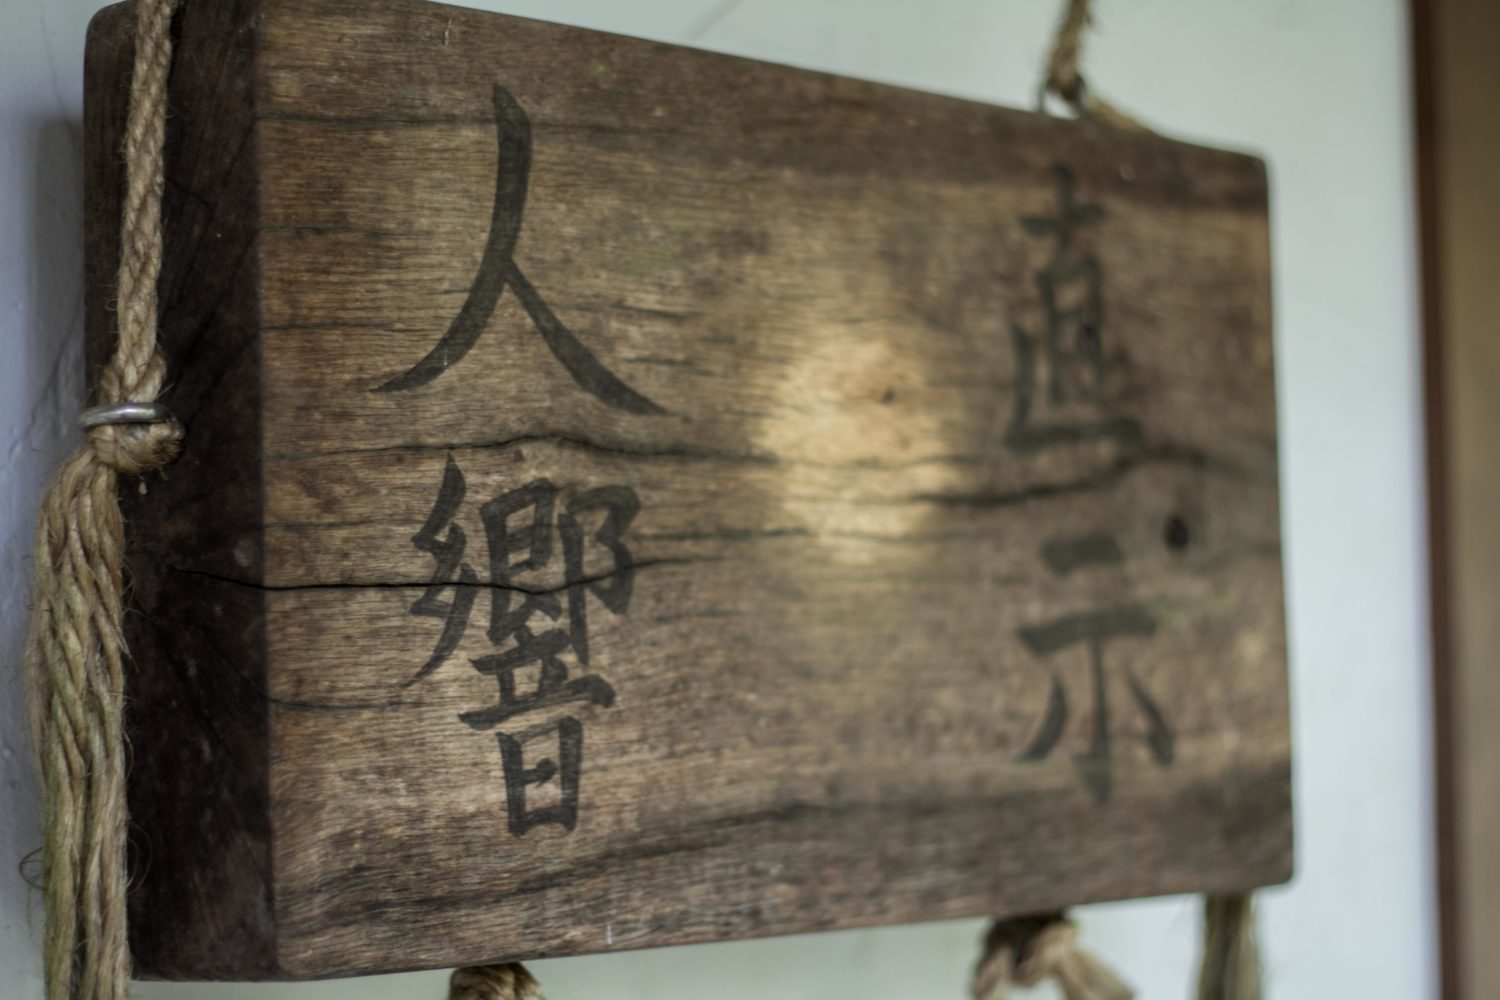 直示
人響